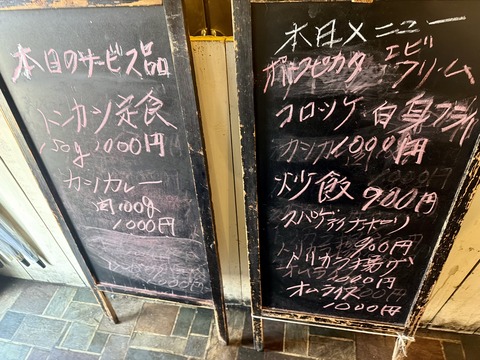 本日のサービス品
トンカツ定食
150g 1000円
カツカレー
肉100g
1000円
本日メニュー
ポークピカタ エビクリーム
コロッケ・白身フライ
1000円
炒飯 900円
スパゲティナポリ
900円
トリカラ揚げ
オムライス
1000円